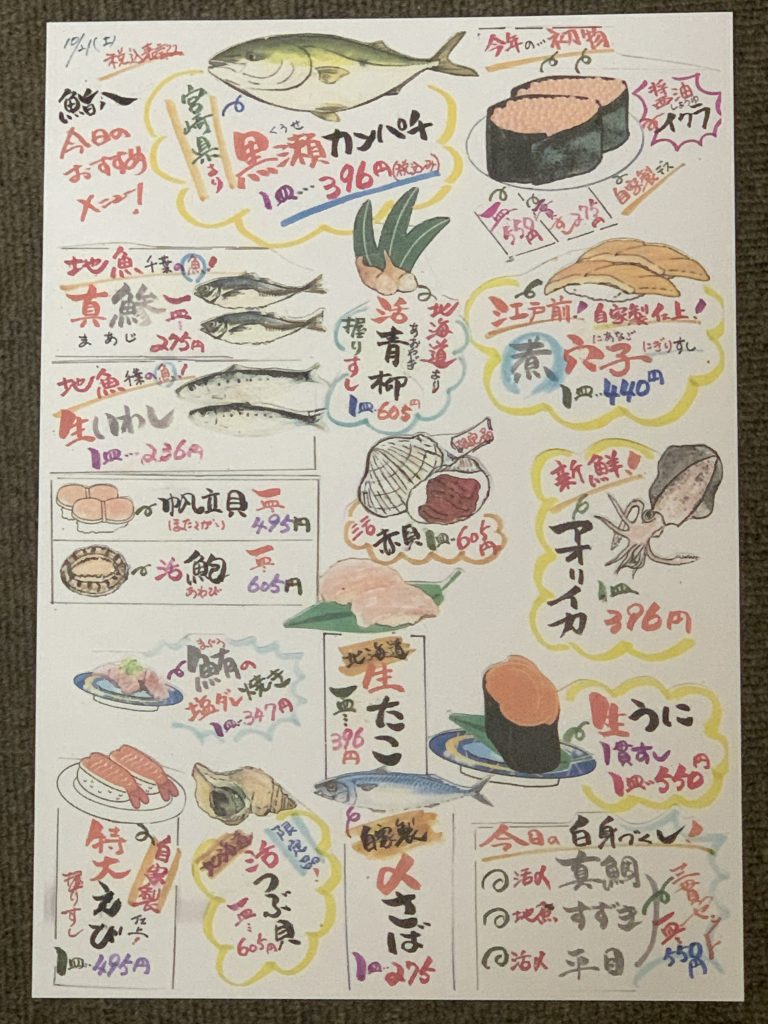 10/21(土)
税込表記
鮨八
今日の
おすすめ
メニュー!
宮崎県より
くろせ
黒瀬カンパチ
1皿…396円(税込み)
今年の…初物
醤油
しょうゆ
イクラ
一皿…550円
275円
自家製デス
地魚千葉の魚!
真鯵
まあじ
一皿…275円
地魚千葉の魚!
生いわし
1皿…236円
北海道より
活青柳
あおやぎ
握りすし
1皿…605円
江戸前!自家製仕上!
煮穴子
にあなご
にぎりすし
1皿…440円
帆立貝
ほたてがい
一皿…495円
活鮑
あわび
一皿…605円
限定品
活赤貝1皿…605円
新鮮!
アオリイカ
1皿…396円
まぐろ
鮪の
塩ダレ焼き
1皿…347円
北海道
生たこ
一皿…396円
生うに
1貫すし
1皿…550円
自家製仕上!
特大えび
握りすし
1皿…495円
北海道
限定品!
活つぶ貝
一皿…605円
自家製
〆さば
1皿…275
今日の白身づくし!
活〆真鯛
地魚すずき
活〆平目
三貫セット
一皿…550円